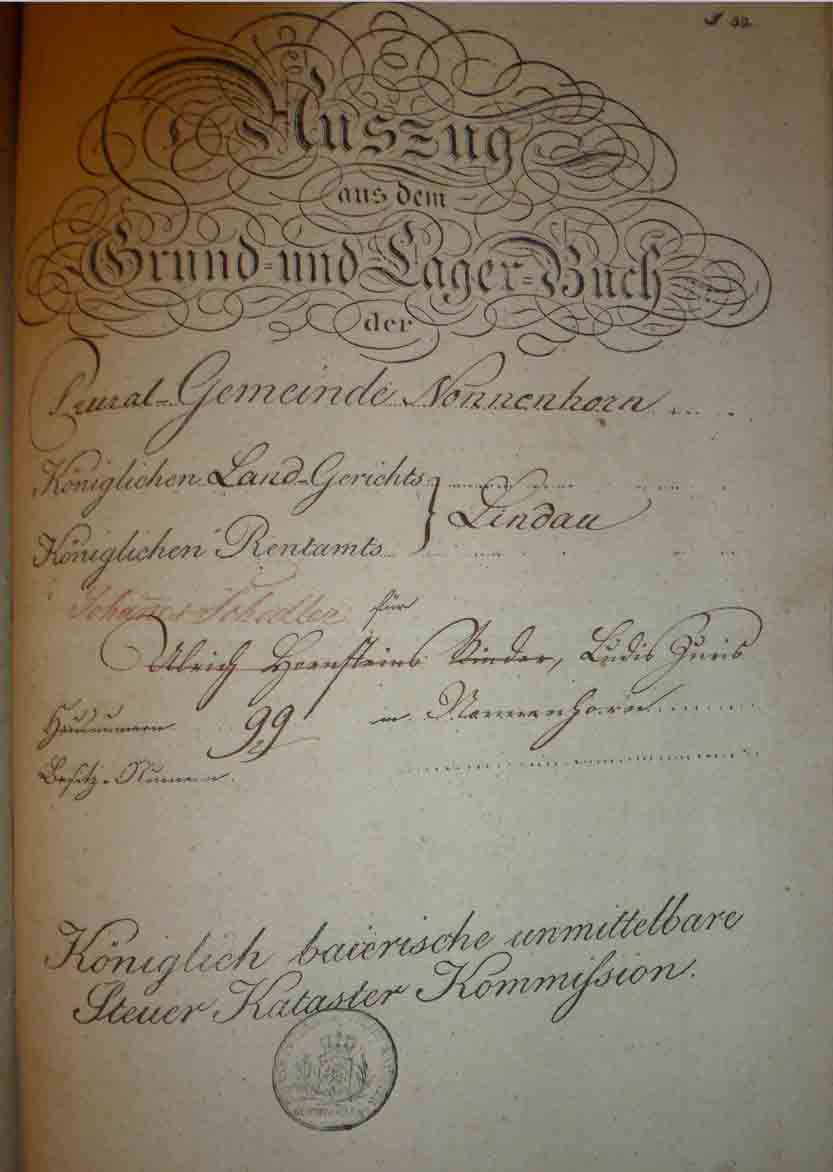 Auszug
aus dem
Grund- und Lager-Buch
der
Rural-Gemeinde Nonnenhorn
Königlichen Land-Gerichts
Lindau
Königlichen Rentamts
für
Ulrich Hornsteins Kinder,
Hausnummer 99 in Nonnenhorn
Besitz-Nummer
Königlich baierische unmittelbare
Steuer Kataster Kommission.